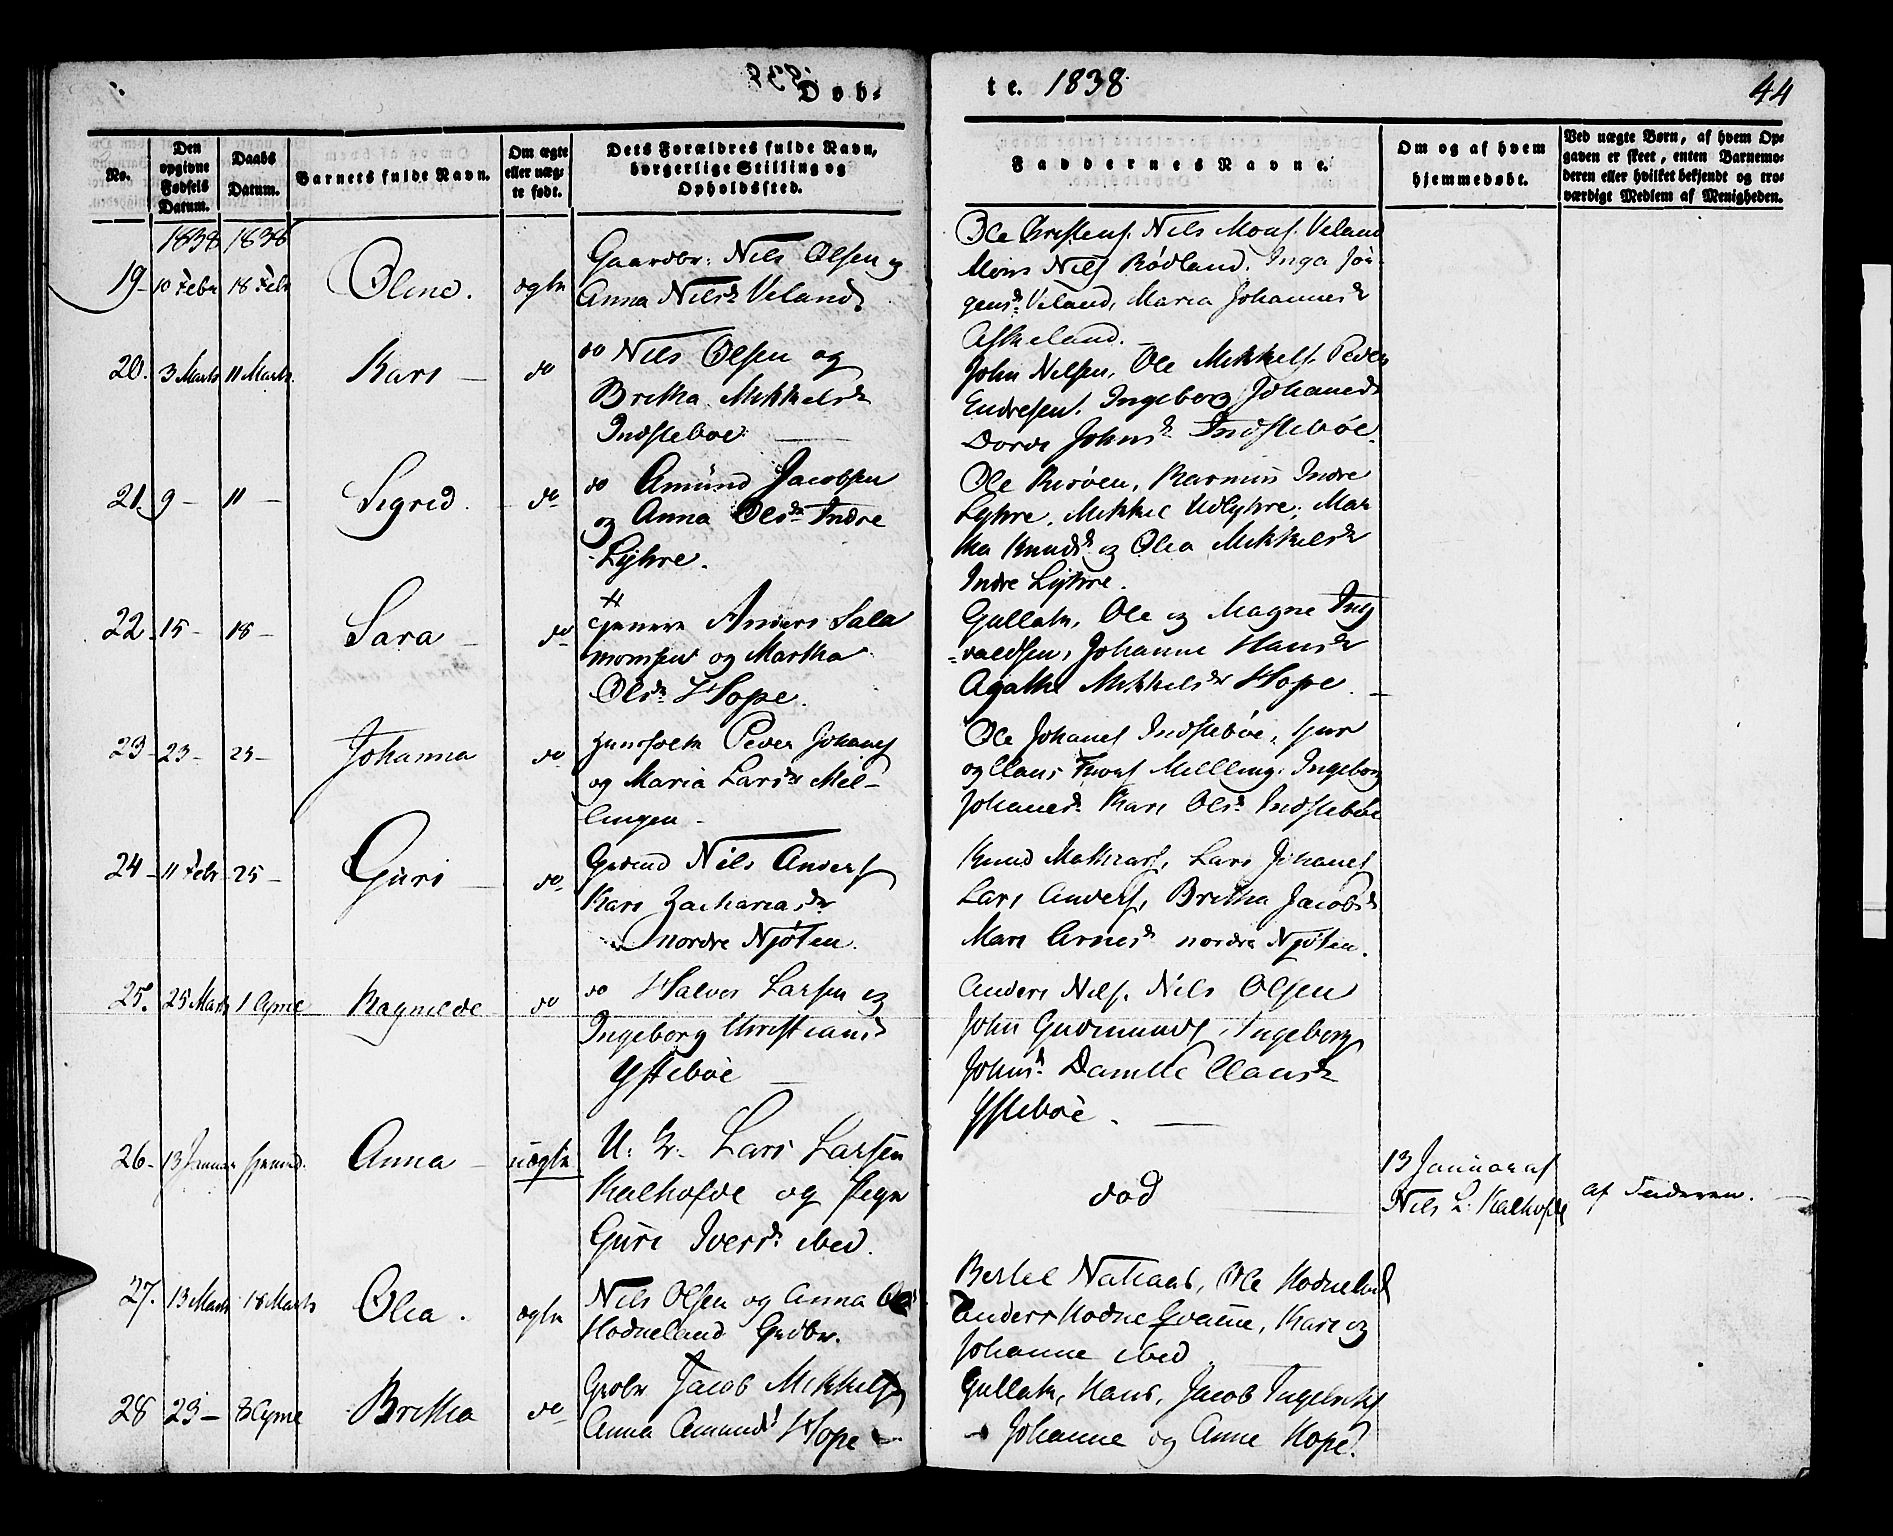 Døb-
te. 1838
44
No.
Den opgivne Fødsels Datum.
Daabs Datum.
Barnets fulde Navn.
Om ægte eller uægte født.
Dets Forældres fulde Navn, borgerlige Stilling og Opholdssted.
Faddernes Navne.
Om og af hvem hjemmedøbt.
Ved uægte Børn, af hvem Opgaven er skeet, enten Barnemoderen eller hvilket bekjendt og troværdigt Medlem af Menigheden.
1838 1838
19 10 Febr 18 Febr Oline. ægte
Gaardbr: Nils Olsen og
Anna Nilsd. Veland
Ole Christens. Nils Mons. Veland
Mons Nils. Rødland. Inga Jør-
gensd. Veland, Maria Johannesd.
Askeland.
20. 3 Marts 11 Marts. Kari do
do Nils Olsen og
Britha Mikkelsd.
Indstebøe
John Nilsen, Ole Mikkels. Peder
Endresen. Ingeborg Johanesd.
Dorde Johnsd. Indstebøe.
21. 9 11 Sigrid. do
do Amund Jacobsen
og Anna Olsd. Indre
Lykre.
Ole Risøen, Rasmus Indre
Lykre, Mikkel Udlykre, Mar-
tha Knudsd. og Olea Mikkelsd.
Indre Lykre.
22. 15 18 Sara do
Anders Sala
monsen og Martha
Olsd. Hope.
Gullak, Ole og Magne Ing
valdsen, Johanne Hansd.
Agathe Mikkelsd. Hope.
23 23 25 Johanna do
Peder Johanes
og Maria Larsd. Mel-
lingen
Ole Johanes Indstebøe,
og Claus Mellling, Ingeborg
Johanesd. Kari Olsd. Indstebøe
24 11 Febr 25 Guri do
Nils Anders
Kari Zachariasd.
nordre Njøten.
Knud Lars Johanes
Lars Anders, Britha Jacobsd.
Mari Arnesd. nordre Njøten.
25. 25 Marts 1 April Ragnilde do
do Halvor Larsen og
Ingeborg Christiansd.
Ystebøe
Anders Nils. Nils Olsen
John Gudmunds, Ingeborg
Johnsd. Damille Clausd.
Ystebøe.
26. 13 Januar hjemmed. Anna uægte
U. K. Lars Larsen
Kalhofde og Pige
Guri Iversd. ibed.
død
13 Januar af
Nils L. Kalhofde
af Faderen.
27. 13 Marts 18 Marts Olea. ægte
Nils Olsen og Anna
Hodneland Grdbr.
Bertel Natraas, Ole Hodneland
Anders Hodne Kari og
Johanne ibed
28 23 8 April Britha do
Grdbr Jacob Mikkels
Anna Amunds Hope
Gullak, Hans, Jacob
Johanne og Anne Hope.